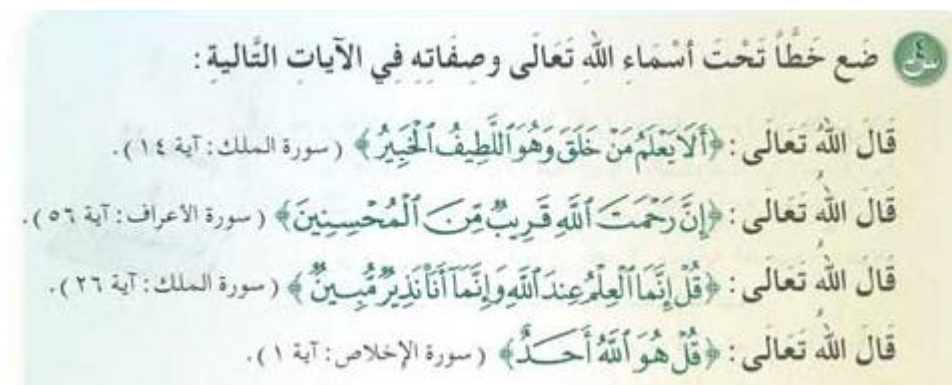 س٤ ضَع خَطًّا تَحْتَ أسْمَاءِ اللهِ تَعَالَى وصِفَاتِه فِي الآيَاتِ التَّاليةِ :
قَالَ اللهُ تَعَالَى : ﴿أَلَا يَعْلَمُ مَنْ خَلَقَ وَهُوَ ٱللَّطِيفُ ٱلْخَبِيرُ﴾ (سورة الملك: آية ١٤).
قَالَ اللهُ تَعَالَى : ﴿إِنَّ رَحْمَتَ ٱللَّهِ قَرِيبٌ مِّنَ ٱلْمُحْسِنِينَ﴾ (سورة الأعراف: آية ٥٦).
قَالَ اللهُ تَعَالَى : ﴿قُلْ إِنَّمَا ٱلْعِلْمُ عِندَ ٱللَّهِ وَإِنَّمَآ أَنَا۠ نَذِيرٌ مُّبِينٌ﴾ (سورة الملك: آية ٢٦).
قَالَ اللهُ تَعَالَى : ﴿قُلْ هُوَ ٱللَّهُ أَحَدٌ﴾ (سورة الإخلاص: آية ١).